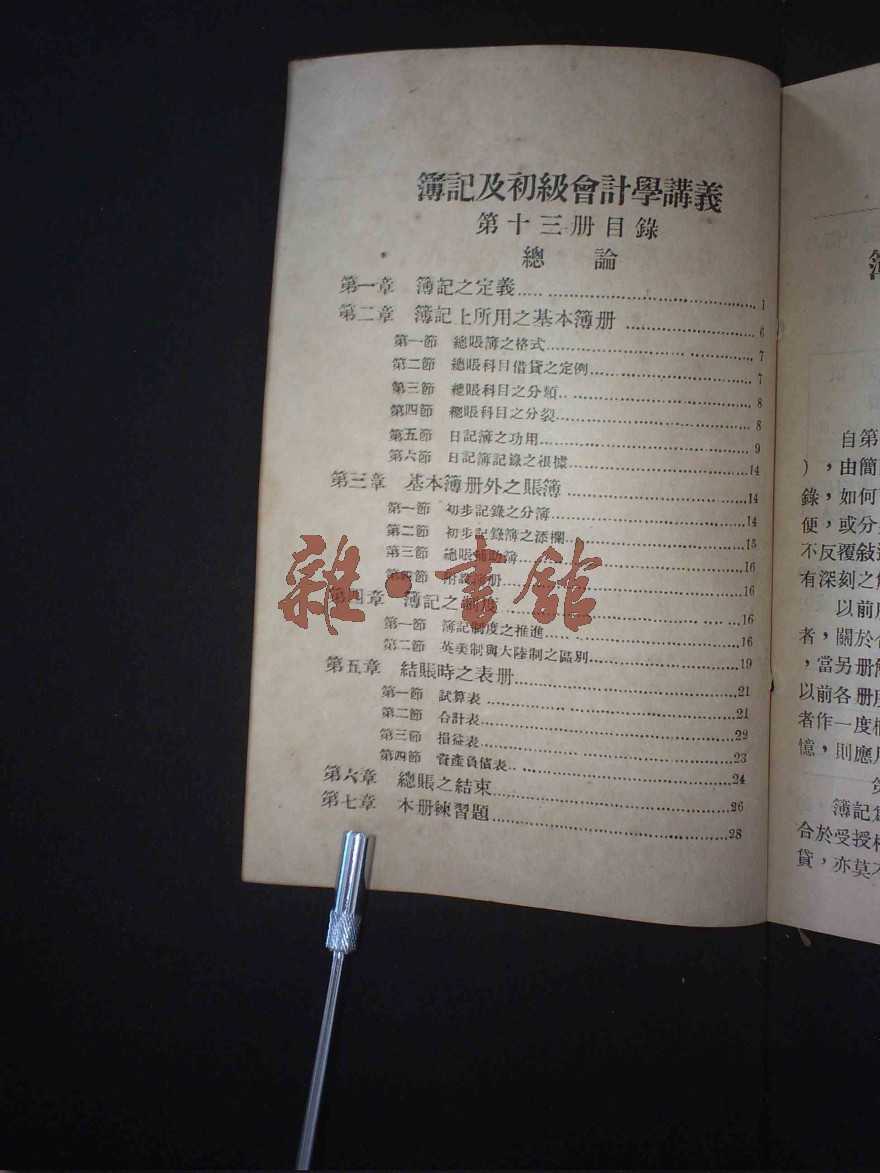 簿記及初級會計學講義
第十三册目錄
總 論
第一章 簿記之定義 1
第二章 簿記上所用之基本簿册 6
第一節 總賬簿之格式 7
第二節 總賬科目借貸之定例 7
第三節 總賬科目之分類 8
第四節 總賬科目之分裂 8
第五節 日記簿之功用 9
第六節 日記簿記錄之根據 14
第三章 基本簿册外之賬簿 14
第一節 初步記錄之分簿 14
第二節 初步記錄簿之添欄 15
第三節 總賬補助簿 16
第四節 簿册 16
第四章 簿記之制度 16
第一節 簿記制度之推進 16
第二節 英美制與大陸制之區別 19
第五章 結賬時之表册 21
第一節 試算表 21
第二節 合計表 22
第三節 損益表 23
第四節 資產負債表 24
第六章 總賬之結束 26
第七章 本册練習題 28
雜·書館
簿
自第
),由簡
錄,如何
便,或分
不反覆敍
有深刻之
以前
者,關於
,當另册
以前各册
者作一度
憶,則應
第
簿記
合於受授
貸,亦莫